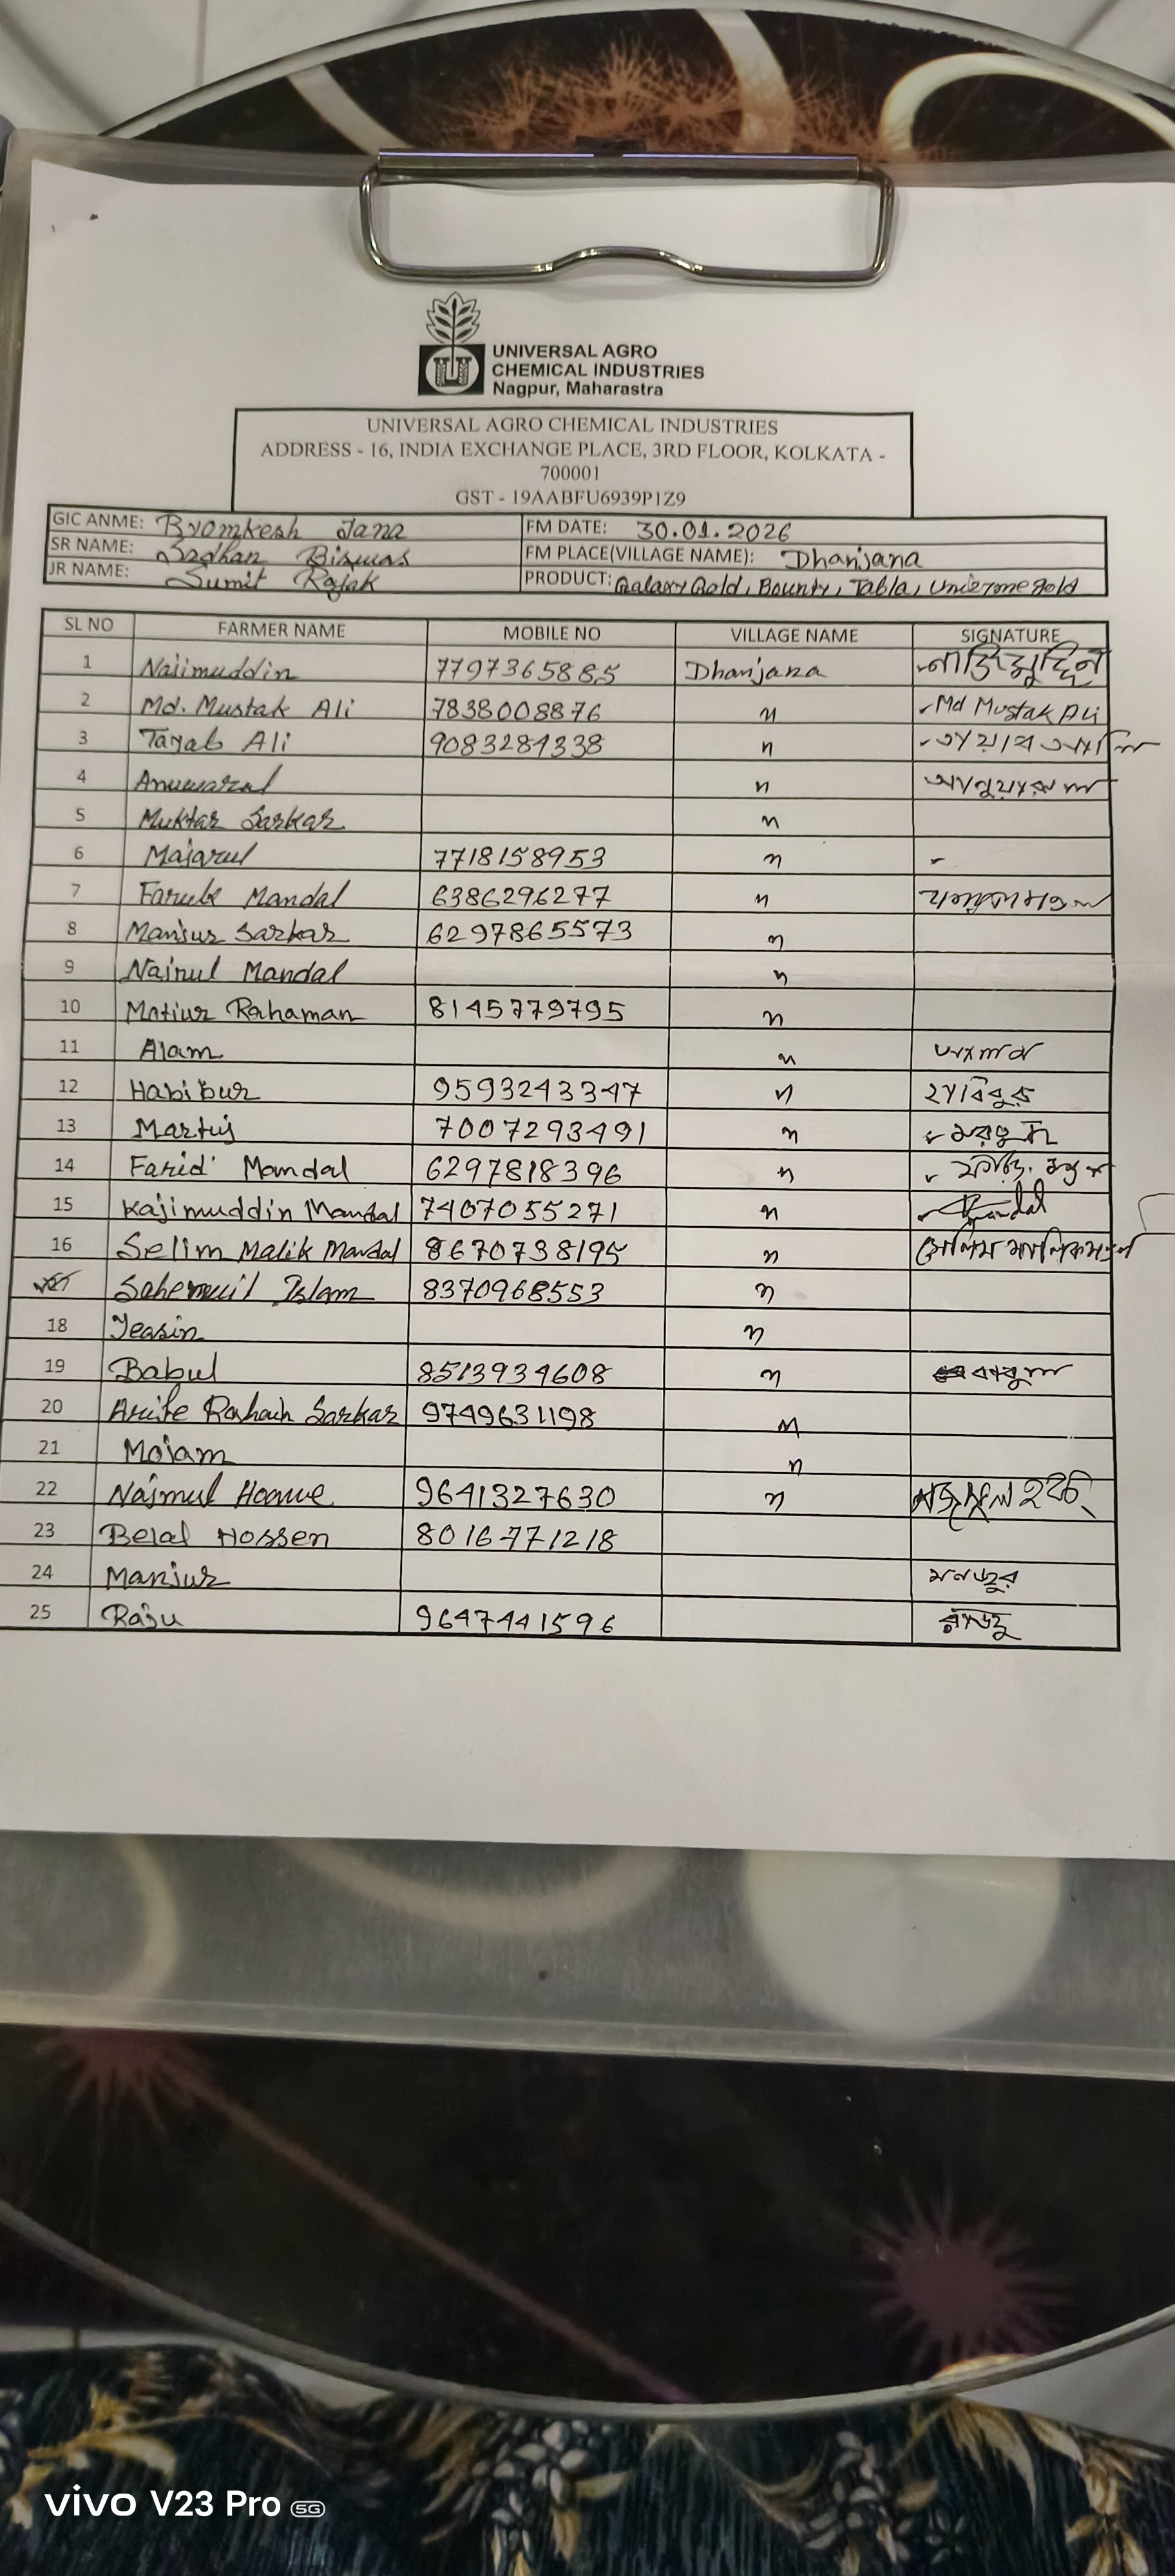 UNIVERSAL AGRO
CHEMICAL INDUSTRIES
Nagpur, Maharastra
UNIVERSAL AGRO CHEMICAL INDUSTRIES
ADDRESS - 16, INDIA EXCHANGE PLACE, 3RD FLOOR, KOLKATA -
700001
GST - 19AABFU6939P1Z9
GIC ANME: Byomkesh Jana FM DATE: 30.01.2026
SR NAME: Sadhan Biswas FM PLACE(VILLAGE NAME): Dhanjana
JR NAME: Sumit Rajak PRODUCT: Galaxy Gold, Bounty, Tabla, Gold
SL NO FARMER NAME MOBILE NO VILLAGE NAME SIGNATURE
1 Najimuddin 7797365885 Dhanjana নাজিমুদ্দিন
2 Md. Mustak Ali 7838008876 " Md Mustak Ali
3 Tayab Ali 9083284338 "
4 Anuwarul "
5 Muktar Sarkar "
6 Majarul 7718158953 "
7 Mandal 6386296277 "
8 Manjur Sarkar 6297865573 "
9 Mandal "
10 Motiur Rahaman 8145779795 "
11 Alam "
12 Habibur 9593243347 " হাবিবুর
13 7007293491 "
14 Farid Mandal 6297818396 "
15 Kajimuddin Mandal 7407055271 "
16 Selim Malik Mandal 8670738195 " সেলিম মালিক মণ্ডল
Islam 8370968553 "
18 Yeasin "
19 Babul 8513934608 " বাবুল
20 Sarkar 9749631198 "
21 Mojam "
22 Najmul 9641327630 "
23 Belal Hossen 8016771218
24 Manjur মনজুর
25 Raju 9647441596 রাজু
vivo V23 Pro 5G